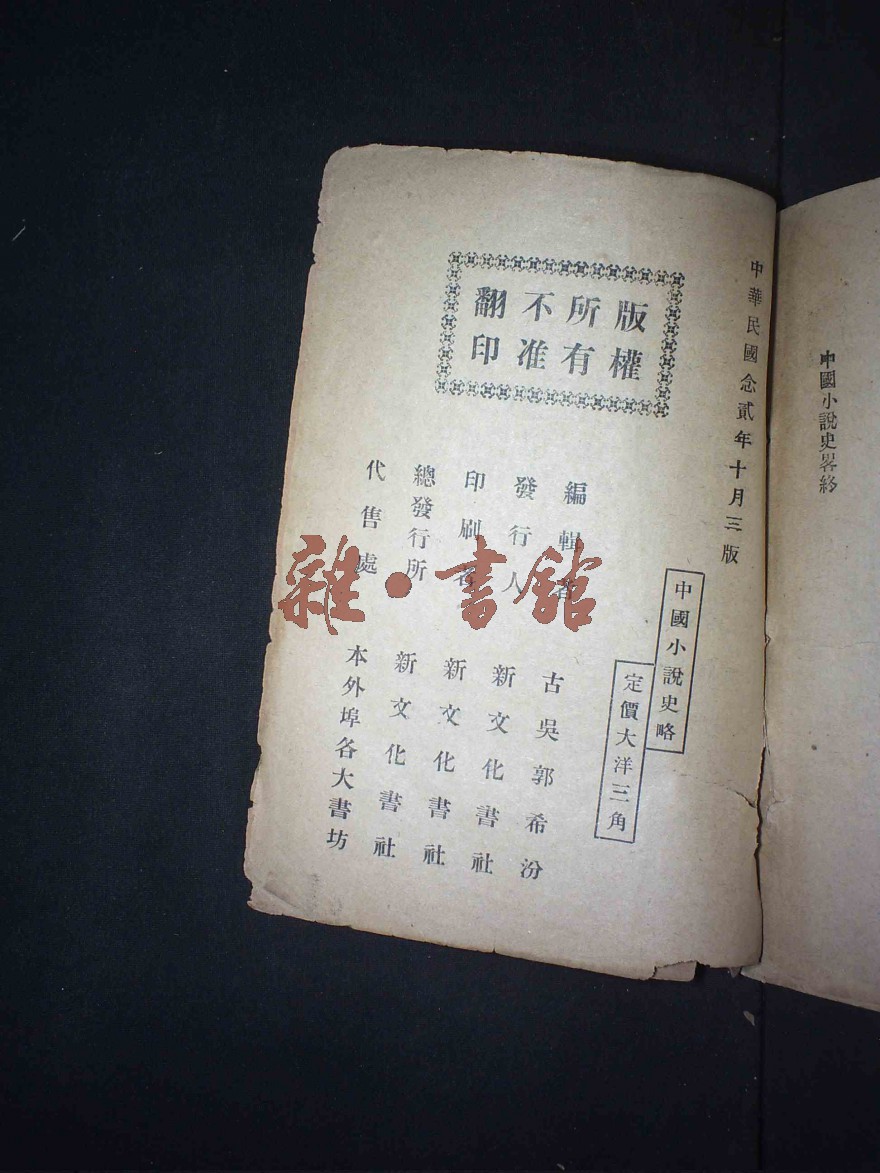 中國小說史畧終
中華民國念貳年十月三版
版權
所有
不准
翻印
中國小說史略
定價大洋三角
編輯者 古吳郭希汾
發行人 新文化書社
印刷者 新文化書社
總發行所 新文化書社
代售處 本外埠各大書坊
雜·書館